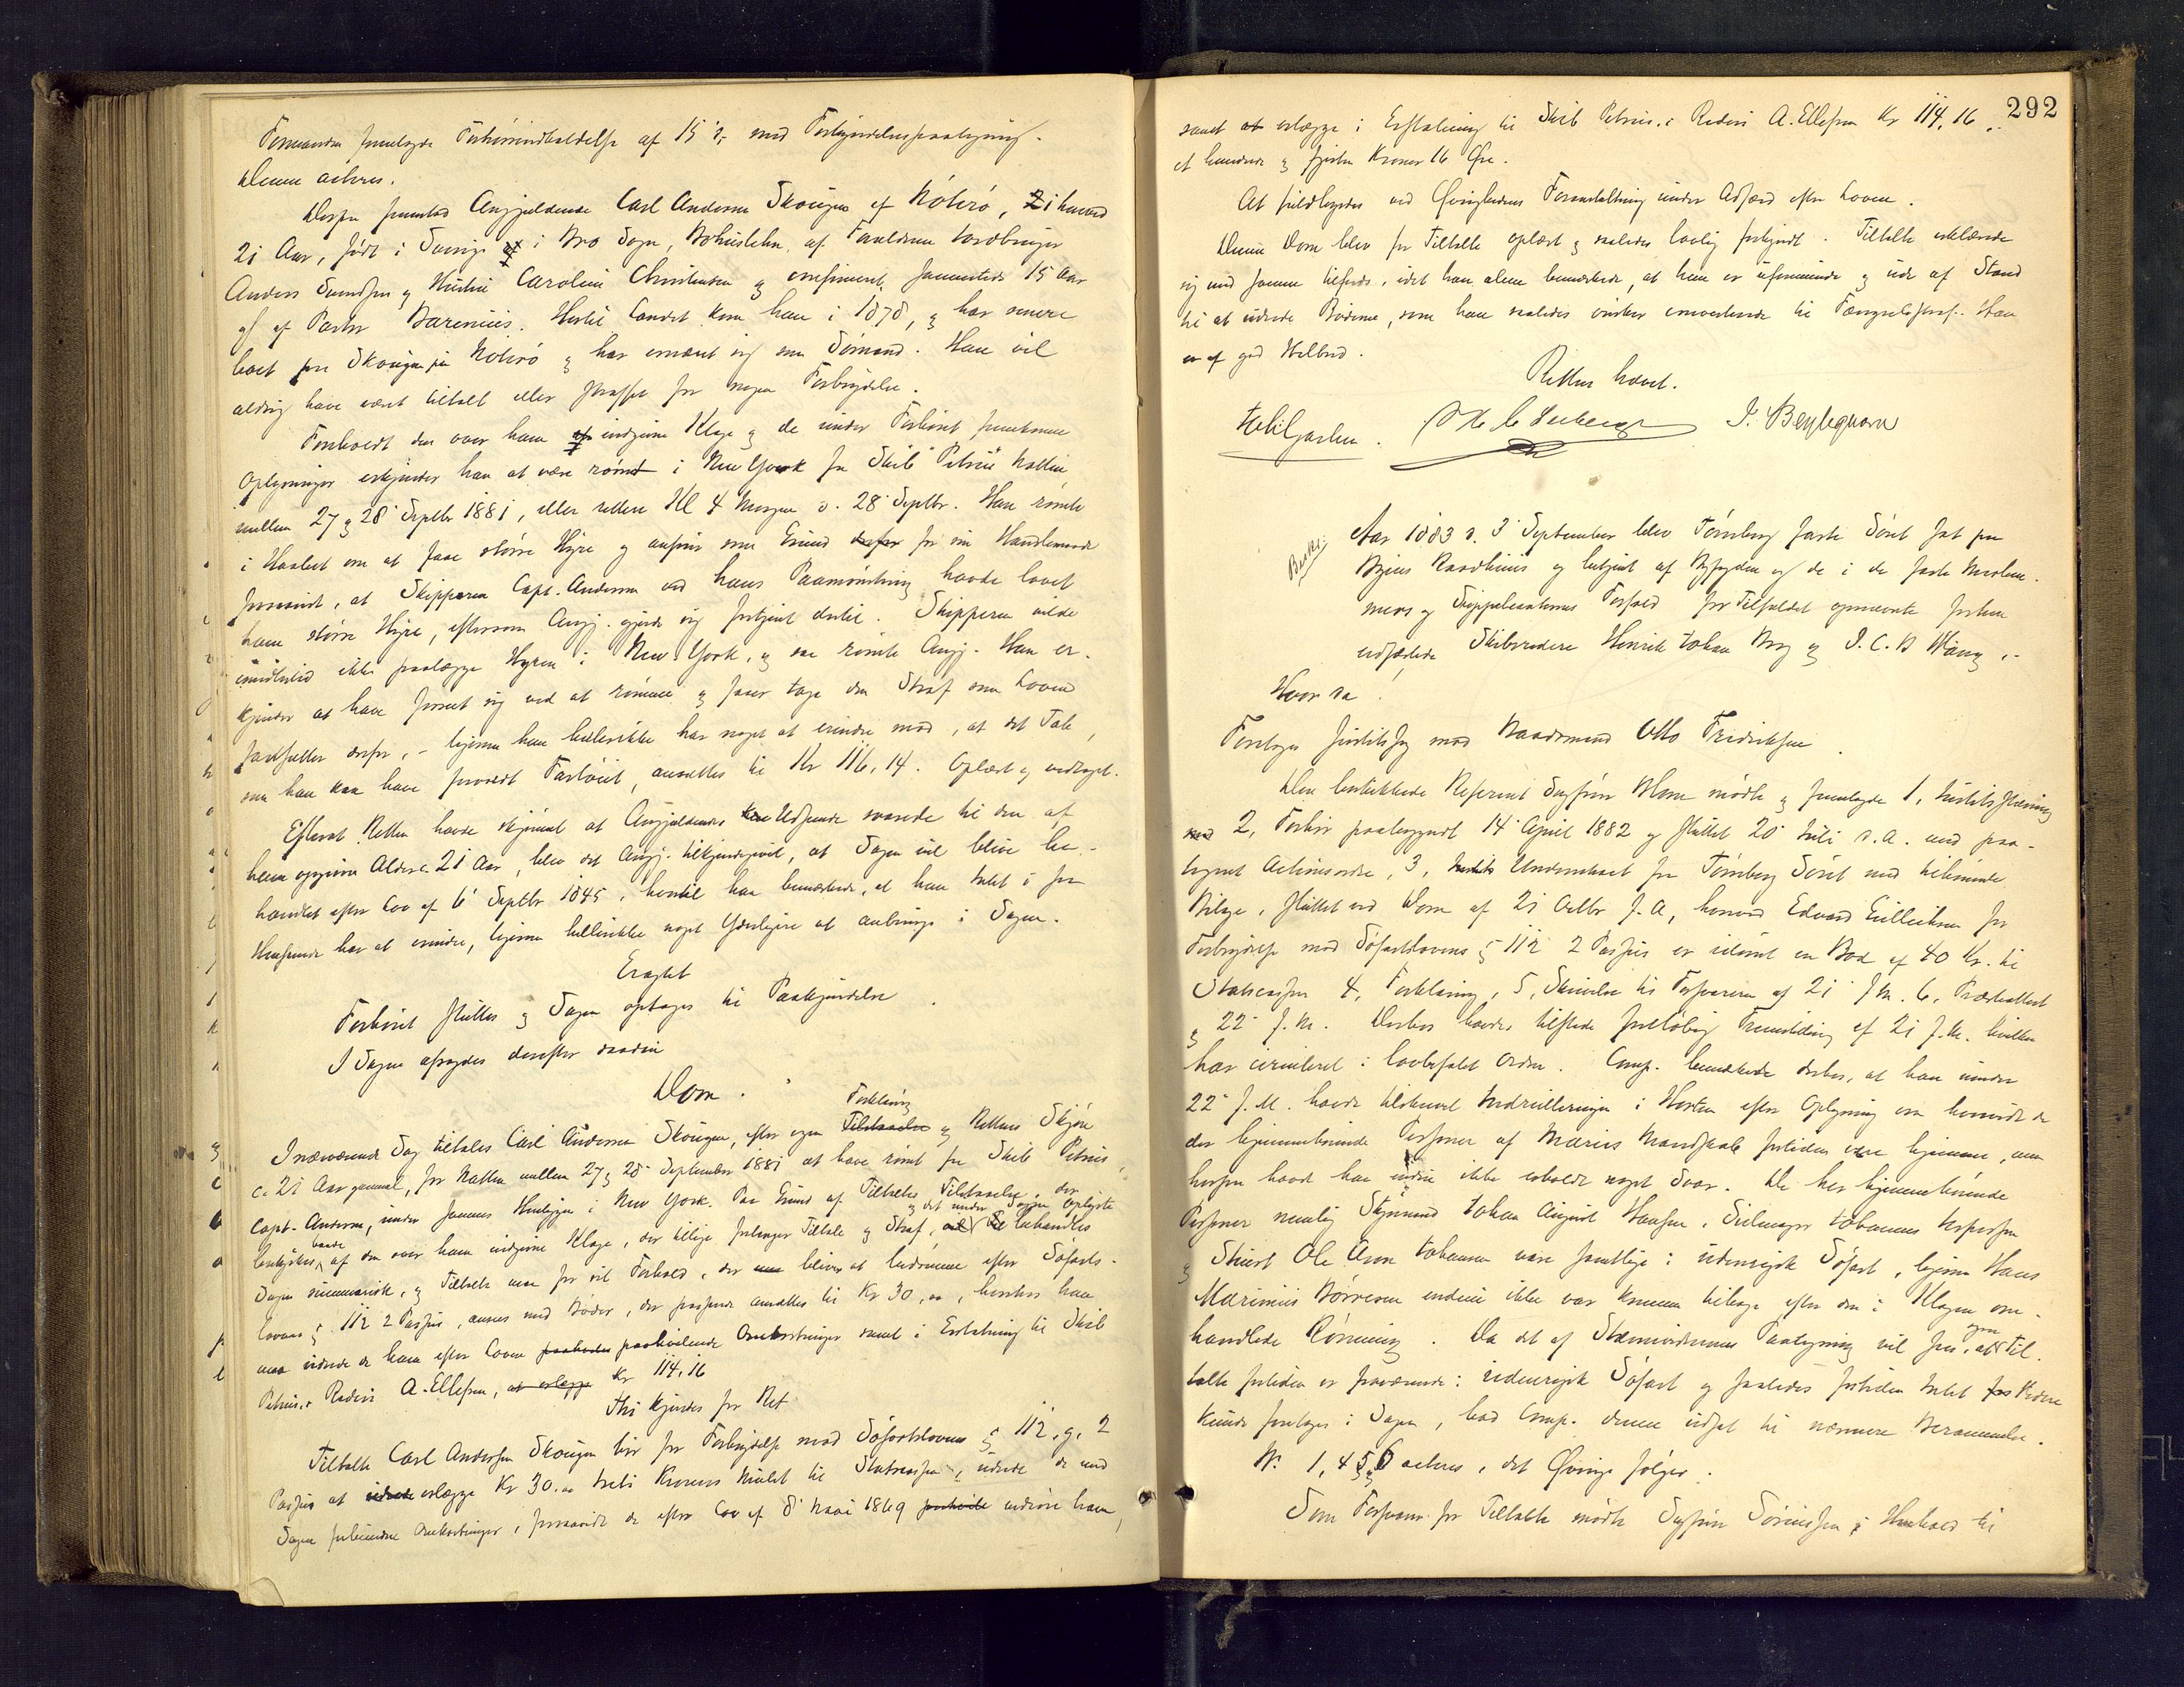 Formanden fremlagde Forhørsindkaldelse af 15 ds. med Forkyndelsespaategning.
Denne acteres.
Derpaa fremstod Angjældende Carl Andersen Skougen af Nøterø, i henved
21 Aar, født i Sverige i Bro Sogn, Bohuslehn, af Forældrene
Anders Svendsen og Hustru Caroline Christensen og confirmert sammesteds 15 Aar
gl af Pastor Barenius. Hertil Landet kom han i 1878, og har senere
boet paa Skougen paa Nøterø og har ernæret sig som Sømand. Han vil
aldrig have været tiltalt eller straffet for nogen Forbrydelse.
Foreholdt den over ham indgivne Klage og de under Forhøret fremkomne
Oplysninger erkjender han at være rømt i New York fra Skib "Petrus" Natten
mellem 27 og 28 Septbr 1881, eller rettere Kl 4 Morgen d. 28 Septbr. Han rømte
i Haabet om at faae større Hyre og anfører som Grund for sin Handlemaade
forøvrigt, at Skipperen Capt. Andersen ved hans Paamønstring havde lovet
ham større Hyre, eftersom Angj. gjorde sig fortjent dertil. Skipperen vilde
imidlertid ikke paalægge Hyren i New York, og saa rømte Angj. Han er-
kjender at have forseet sig ved at rømme og faaer tage den Straf som Loven
fastsætter derfor, - ligesom han hellerikke har noget at erindre mod, at det Tab,
som han kan have forvoldt Fartøiet, ansættes til Kr 116,14. Oplæst og vedtaget.
Efterat Retten havde skjønnet at Angjældendes Udseende svarede til den af
ham opgivne Alder c. 21 Aar, blev det Angj. tilkjendegivet, at Sagen vil blive be-
handlet efter Lov af 6 Septbr 1845, hertil han bemærkede, at han Intet i saa
Henseende har at erindre, ligesom hellerikke noget Yderligere at anbringe i Sagen.
Eragtet
Forhøret sluttes og Sagen optages til Paakjendelse.
I Sagen afsagdes derefter saadan
Dom.
Forklaring
I nærværende Sag tiltales Carl Andersen Skougen, efter egen Tilstaaelse og Rettens Skjøn
c. 21 Aar gammel, for Natten mellem 27 og 28 September 1881 at have rømt fra Skib Petrus,
Capt. Andersen, under sammes Henliggen i New York. Paa Grund af Tiltaltes Tilstaaelse, der
og det under Sagen Oplyste
bestyrkes baade af den over ham indgivne Klage, der tillige forlanger Tiltale og Straf, behandles
Sagen summarisk, og Tiltalte maa for sit Forhold, der bliver at bedømme efter Søfarts-
lovens § 112 2 Passus, ansees med Bøder, der passende ansættes til Kr 30,00, hvorhos han
maa udrede de ham efter Loven paahvilende Omkostninger samt i Erstatning til Skib
Petrus's Rederi A. Ellefsen, at erlægge Kr 114,16
Thi kjendes for Ret
Tiltalte Carl Andersen Skougen bør for Forbrydelse mod Søfartslovens § 112, g. 2
Passus at erlægge Kr 30.00 treti Kroner Mulct til Statscassen, udrede de med
Sagen forbundne Omkostninger, forsaavidt de efter Lov af 8 Mai 1869 vedrøre ham,
292
samt at erlægge i Erstatning til Skib Petrus's Rederi A. Ellefsen Kr 114,16
et hundrede og fjorten Kroner 16 Øre.
At fuldbyrdes ved Øvrighedens Foranstaltning under Adfærd efter Loven.
Denne Dom blev for Tiltalte oplæst og saaledes lovlig forkyndt. Tiltalte erklærede
sig med samme tilfreds, idet han alene bemærkede, at han er uformuende og ude af Stand
til at udrede Bøderne, som han saaledes ønsker omvexlende til Fængselsstraf. Han
er af god Helbred.
Retten hævet.
Aar 1883 d. 3 September blev Tønsberg faste Søret sat paa
Byens Raadhuus og betjent af Byfogden og de i de faste Medlem-
mers og Suppleanternes Forfald for Tilfældet opnævnte forhen
edfæstede Skibsredere Henrik Johan Bog og I. C. B. Wang.
Hvor da!
Foretoges Justitssag mod Baadsmand Otto Fredriksen.
Den beskikkede Referent Sagfører Blom mødte og fremlagde 1, Justitsstævning
2, Forhør paabegyndt 14 April 1882 og sluttet 20 Juli s. A. med paa-
tegnet Actionsordre, 3, Underretsact fra Tønsberg Søret med tilhørende
Bilage, sluttet ved Dom af 21 Octbr f. A, hvorved Edvard Gulliksen for
Forbrydelse mod Søfartslovens § 112 2 Passus er idømt en Bod af 40 Kr. til
Statscassen 4, Forklaring, 5, Skrivelse til Forsvareren af 21 f.M. 6, Præsteattest
af 22 f.M. Derhos havdes tilstede foreløbig Fremstilling af 21 f.M. hvilken
har circuleret i lovbefalet Orden. Comp. bemærkede derhos, at han under
22 f.M. havde tilskrevet Indrulleringen i Horten efter Oplysning om hvorvidt de
der hjemmehørende Personer af Marius Mandskab fortiden vare hjemme, men
herpaa havde han endnu ikke erholdt noget Svar. De her hjemmehørende
Personer nemlig Styrmand Johan August Hansen, Seilmager Johannes Jespersen
og Stuert Ole Aron Johansen vare samtlige i udenrigsk Søfart, ligesom Hans
Marinius Børresen endnu ikke var kommen tilbage efter den i Klagen om-
handlede Rømning. Da det af Stævnevidnernes Paategning vil sees, at Til-
talte fortiden er fraværende i udenrigsk Søfart og saaledes fortiden Intet videre
kunde foretages i Sagen, bad Comp. denne udsat til nærmere Berammelse.
No 1, 4, 5 og 6 acteres, det Øvrige følger.
Som Forsvarer for Tiltalte mødte Sagfører Sørensen i Henhold til